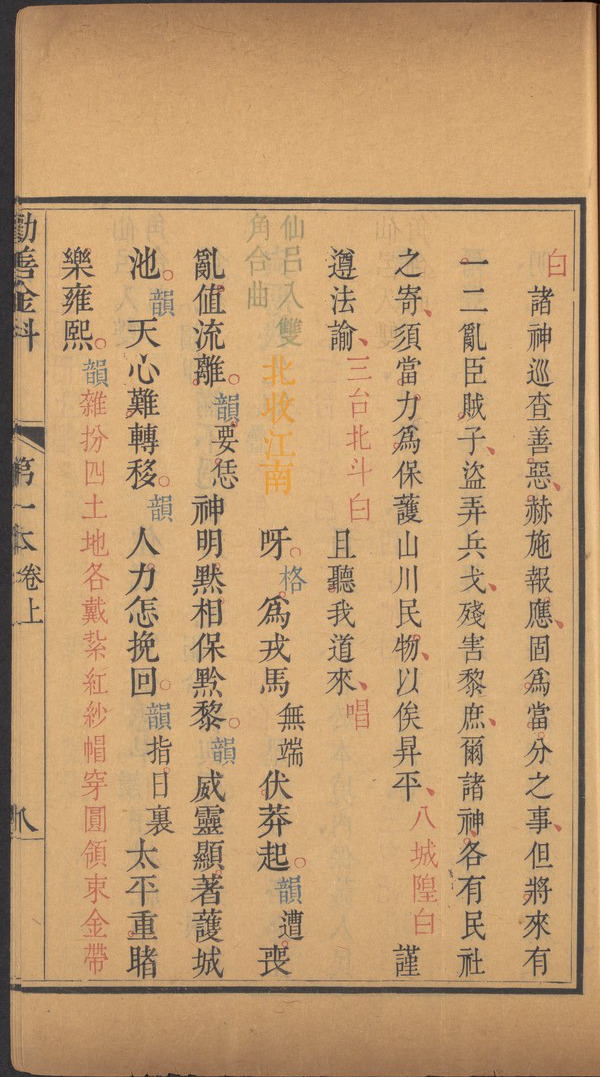 白　諸神巡查善惡、赫施報應、固爲當分之事、但將來有
一二亂臣賊子、盜弄兵戈、殘害黎庶、爾諸神各有民社
之寄、須當力爲保護山川民物、以俟昇平、八城隍白　謹
遵法諭、三台北斗白　且聽我道來、唱
仙呂入雙
角合曲　北收江南　呀。格爲戎馬無端伏莽起。韻遭喪
亂值流離。韻要恁神明默相保黔黎。韻威靈顯著護城
池。韻天心難轉移。韻人力怎挽回。韻指日裏太平重睹
樂雍熙。韻雜扮四土地各戴紮紅紗帽穿圓領束金帶
勸善金科　第一本卷上　八